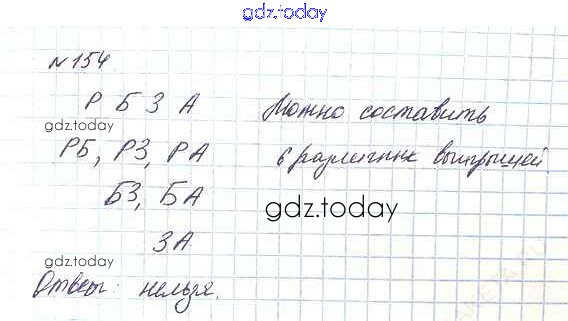 gdz.today
№ 154
Р Б З А Можно составить
gdz.today
РБ, РЗ, РА 6 различных выигрышей.
БЗ, БА
gdz.today
ЗА
gdz.today
Ответ: нельзя.